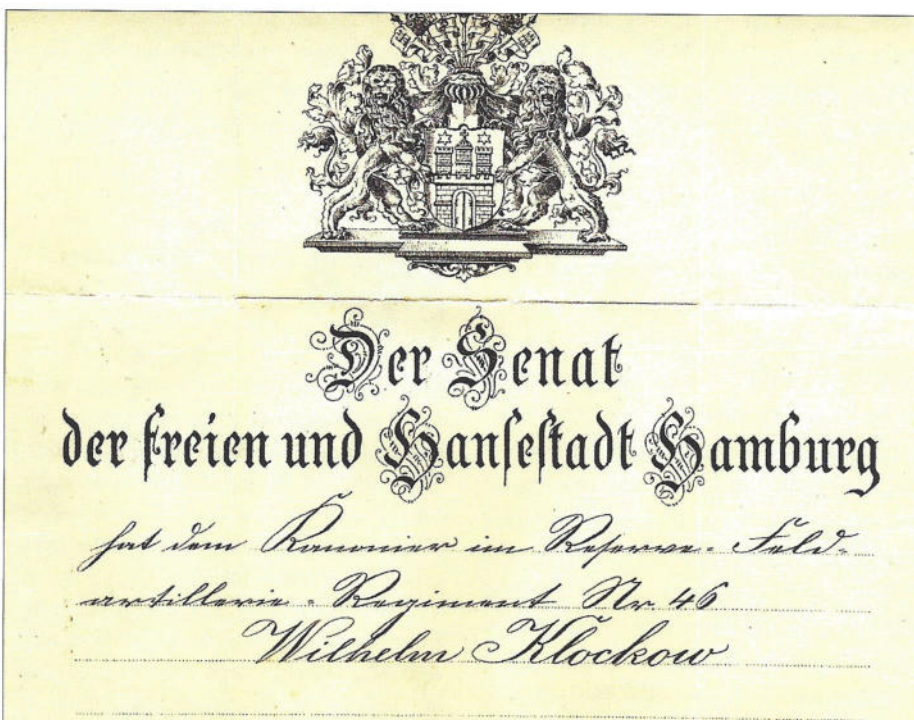 Der Senat
der freien und Hansestadt Hamburg
hat dem Kanonier im Reserve-Feld-
artillerie-Regiment Nr. 46
Wilhelm Klockow